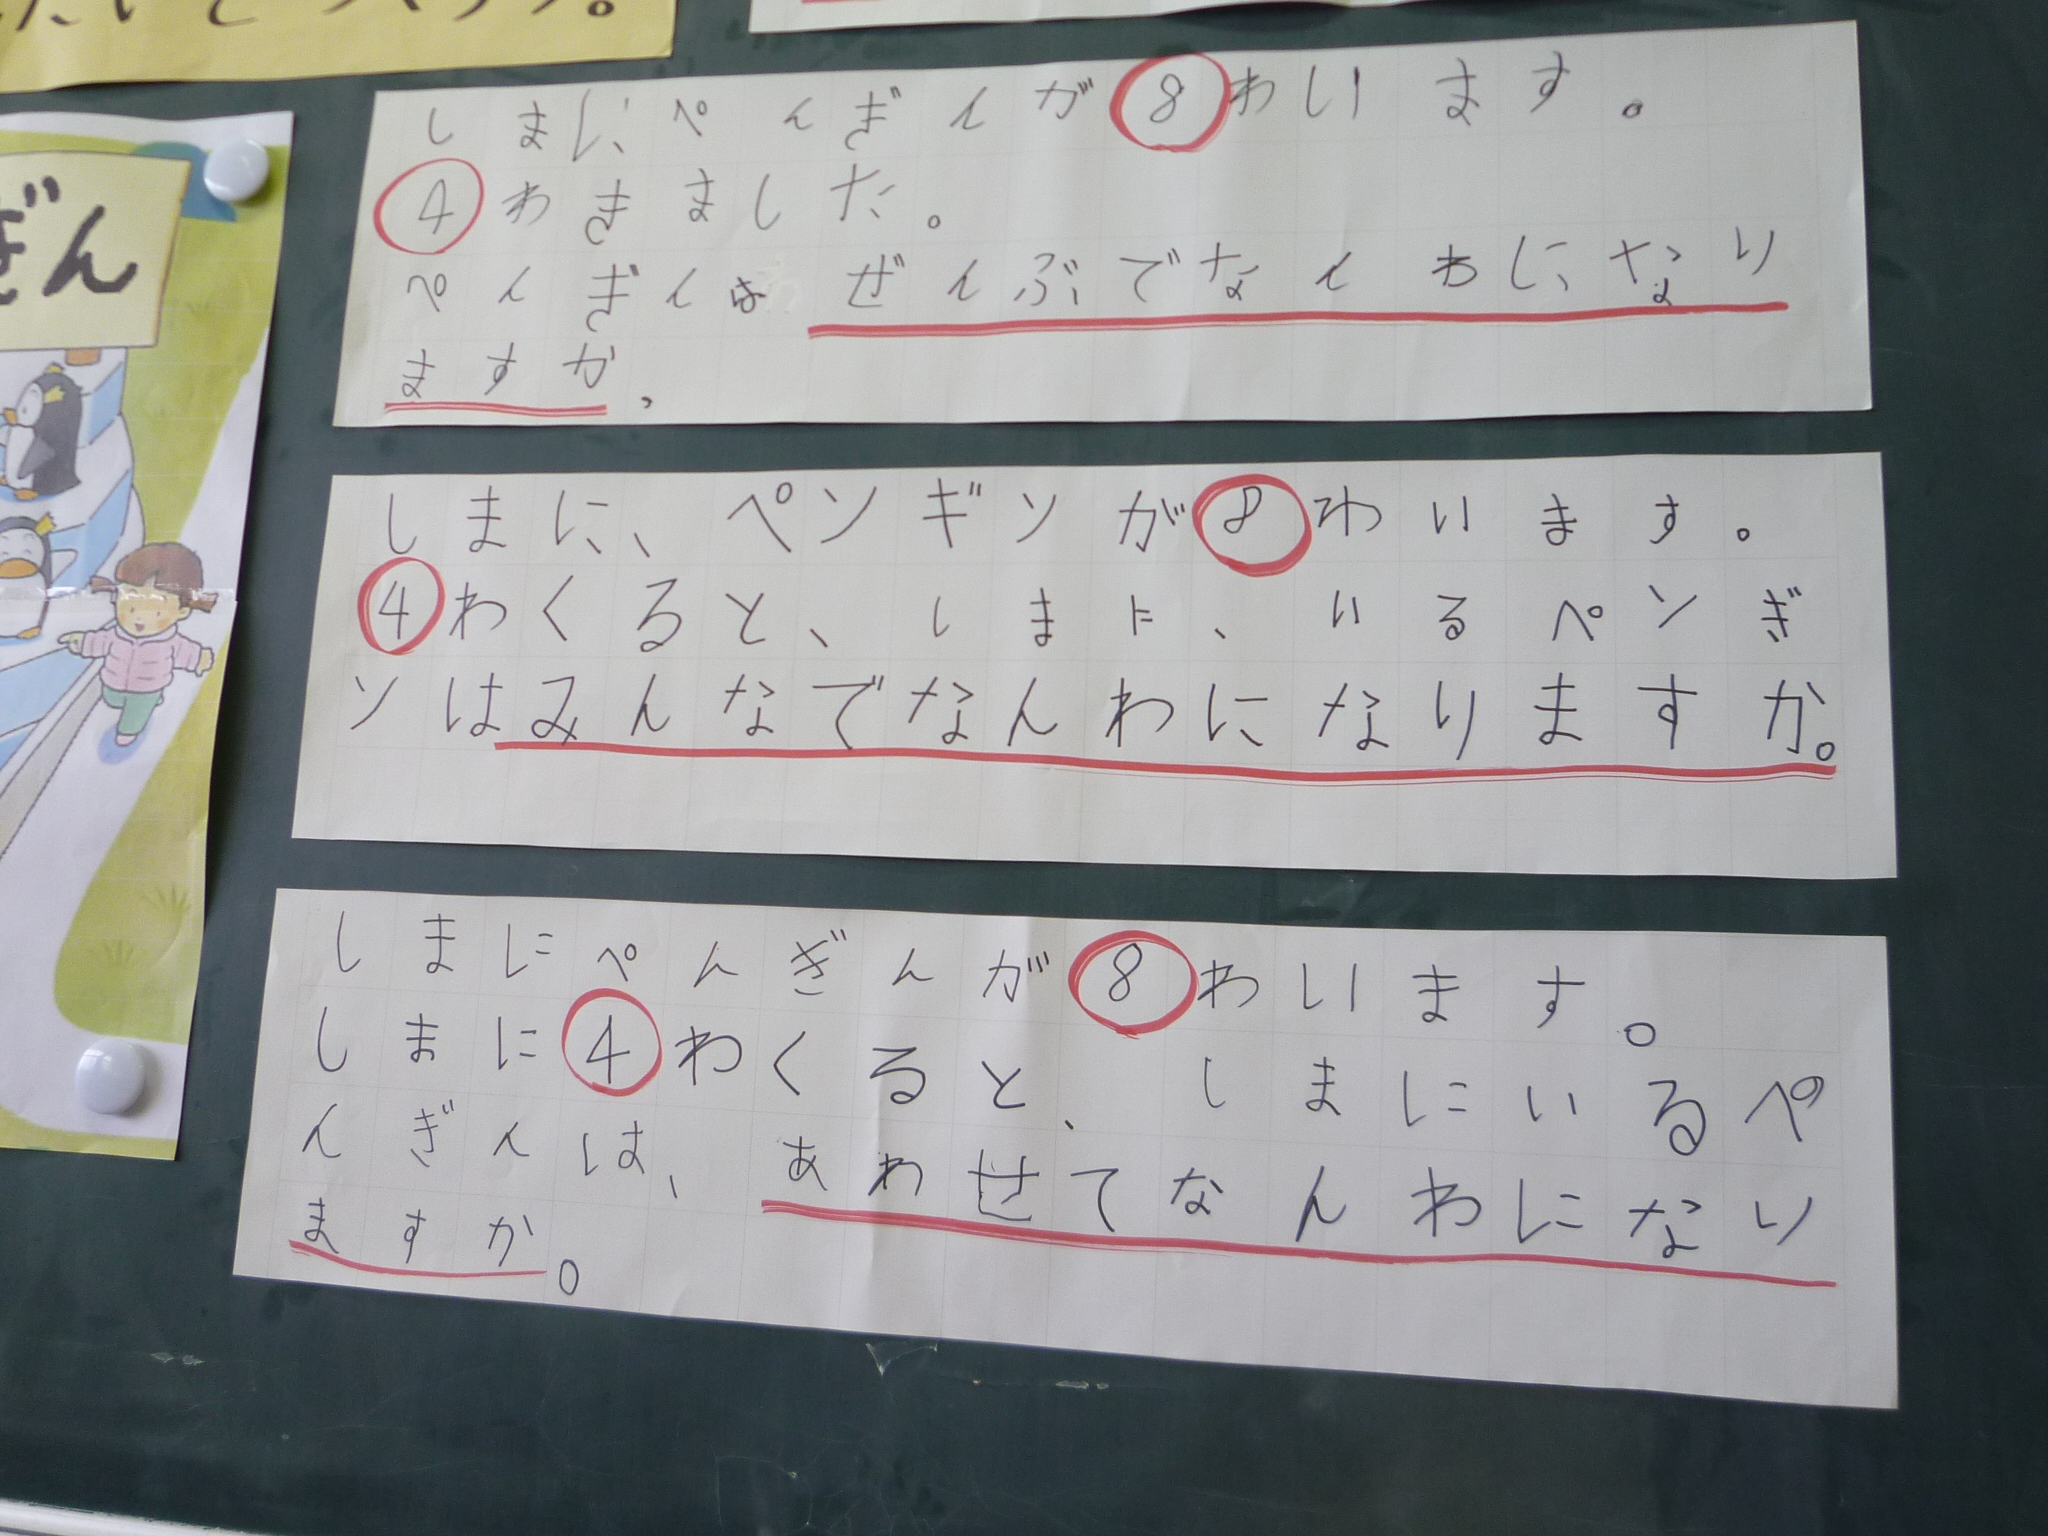 ぎん
しまにぺんぎんが8わいます。
4わきました。
ぺんぎんはぜんぶでなんわになり
ますか。
しまに、ペンギンが8わいます。
4わくると、しまに、いるペンぎ
ンはみんなでなんわになりますか。
しまにぺんぎんが8わいます。
しまに4わくると、しまにいるぺ
んぎんは、あわせてなんわになり
ますか。